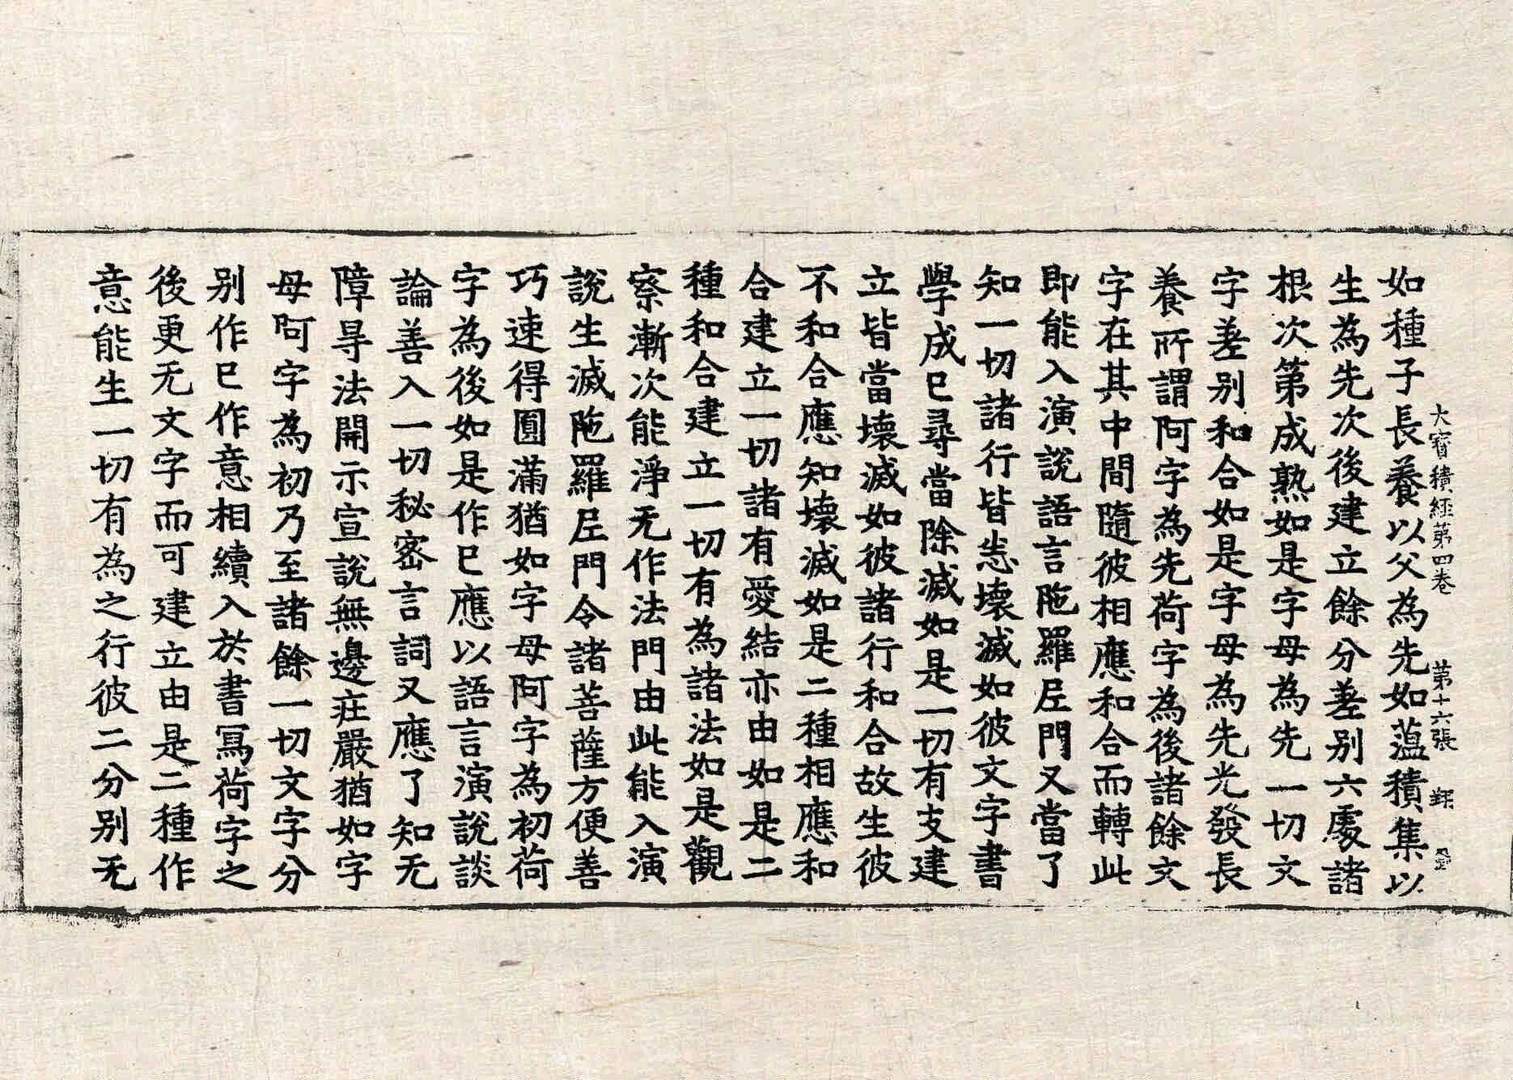 大寶積經第四卷 第十六張 翔
如種子長養以父為先如薀積集以
生為先次後建立餘分差别六處諸
根次第成熟如是字母為先一切文
字差别和合如是字母為先光發長
養所謂阿字為先荷字為後諸餘文
字在其中間隨彼相應和合而轉此
即能入演說語言陁羅尼門又當了
知一切諸行皆悉壞滅如彼文字書
學成已尋當除滅如是一切有支建
立皆當壞滅如彼諸行和合故生彼
不和合應知壞滅如是二種相應和
合建立一切諸有愛結亦由如是二
種和合建立一切有為諸法如是觀
察漸次能淨无作法門由此能入演
說生滅陁羅尼門令諸菩薩方便善
巧速得圓滿猶如字母阿字為初荷
字為後如是作已應以語言演說談
論善入一切秘密言詞又應了知无
障㝵法開示宣說無邊莊嚴猶如字
母阿字為初乃至諸餘一切文字分
别作已作意相續入於書寫荷字之
後更无文字而可建立由是二種作
意能生一切有為之行彼二分别无